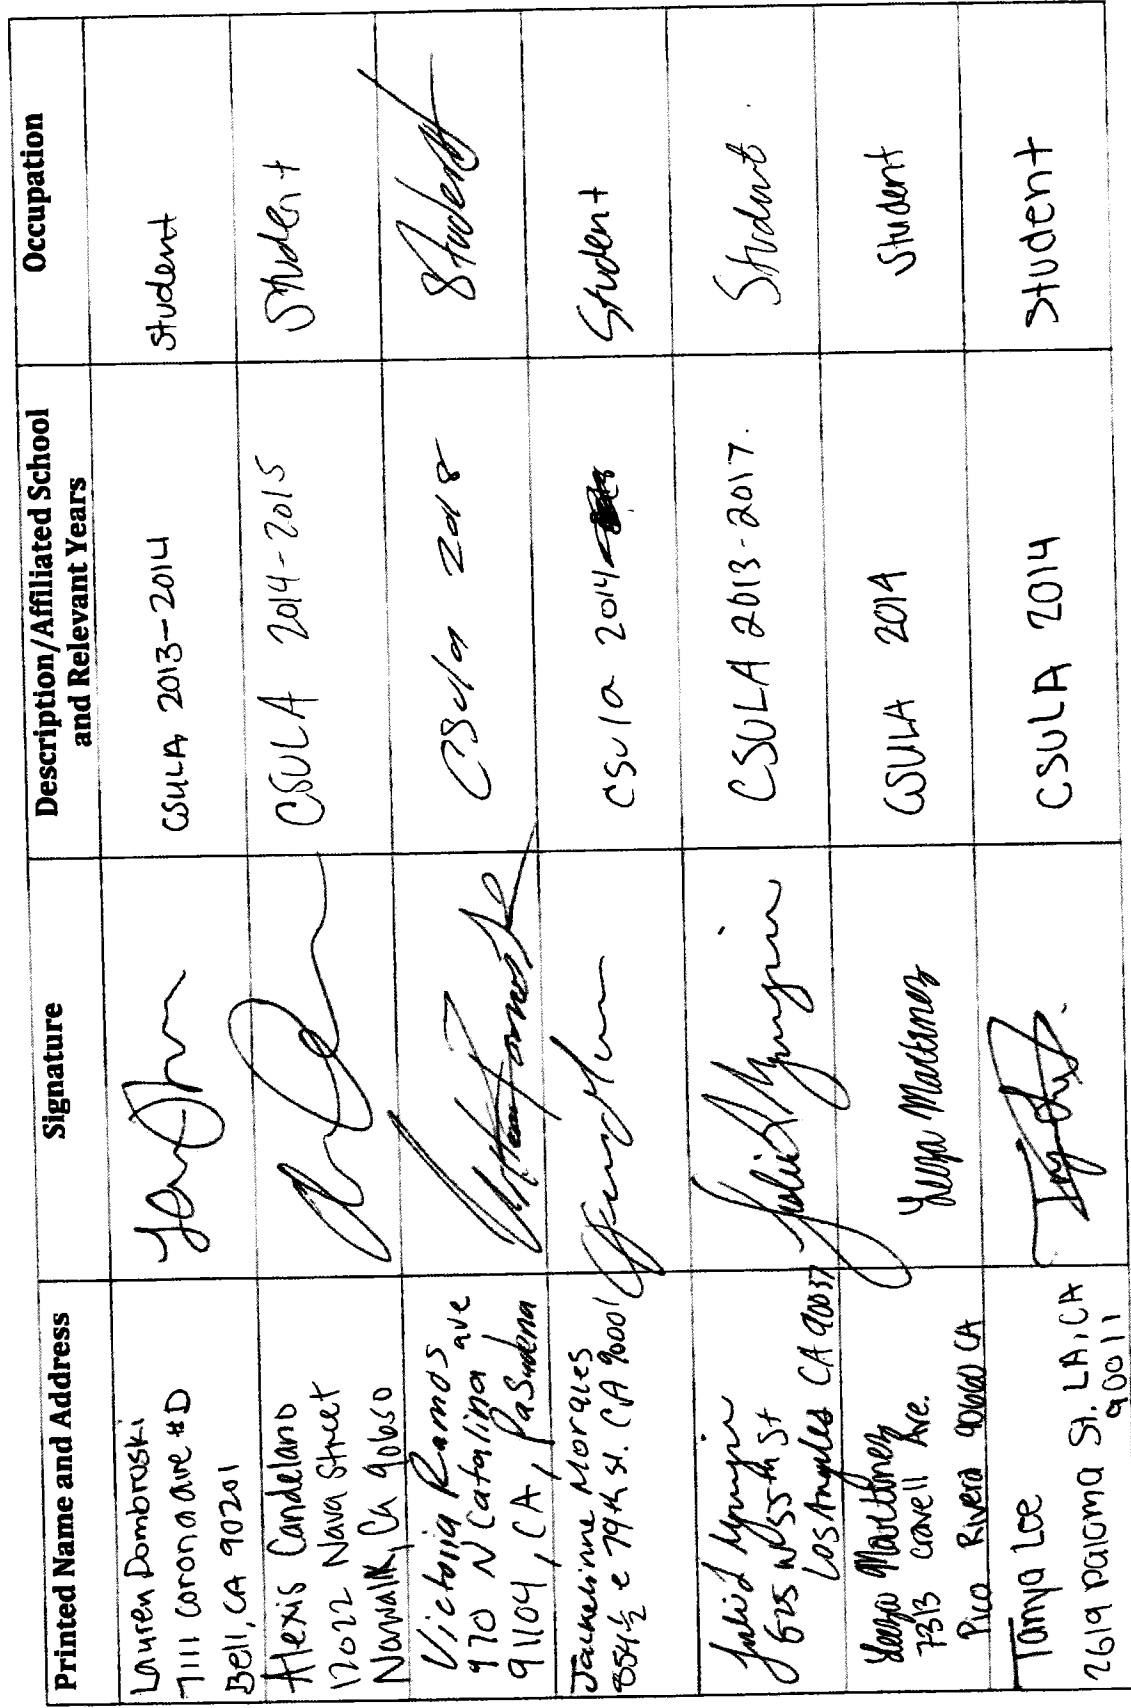 Printed Name and Address
Signature
Description/Affiliated School
and Relevant Years
Occupation
Lauren Dombroski
7111 corona ave #D
Bell, CA 90201
CSULA 2013-2014
student
Alexis Candelano
12022 Nava Street
Norwalk, Ca 90650
CSULA 2014-2015
Student
Victoria Ramos
970 N Catalina ave
91104, CA, Pasadena
CSula 2018
Student
Jackelinne Morales
854½ e 79th st. CA 90001
CSULA 2014
Student
625 W 55th St
Los Angeles CA 90037
CSULA 2013-2017.
Student.
Martinez
7313 Cravell Ave.
Pico Rivera 90660 CA
Martinez
CSULA 2014
Student
Tanya Lee
2619 paloma St. LA, CA
90011
CSULA 2014
Student